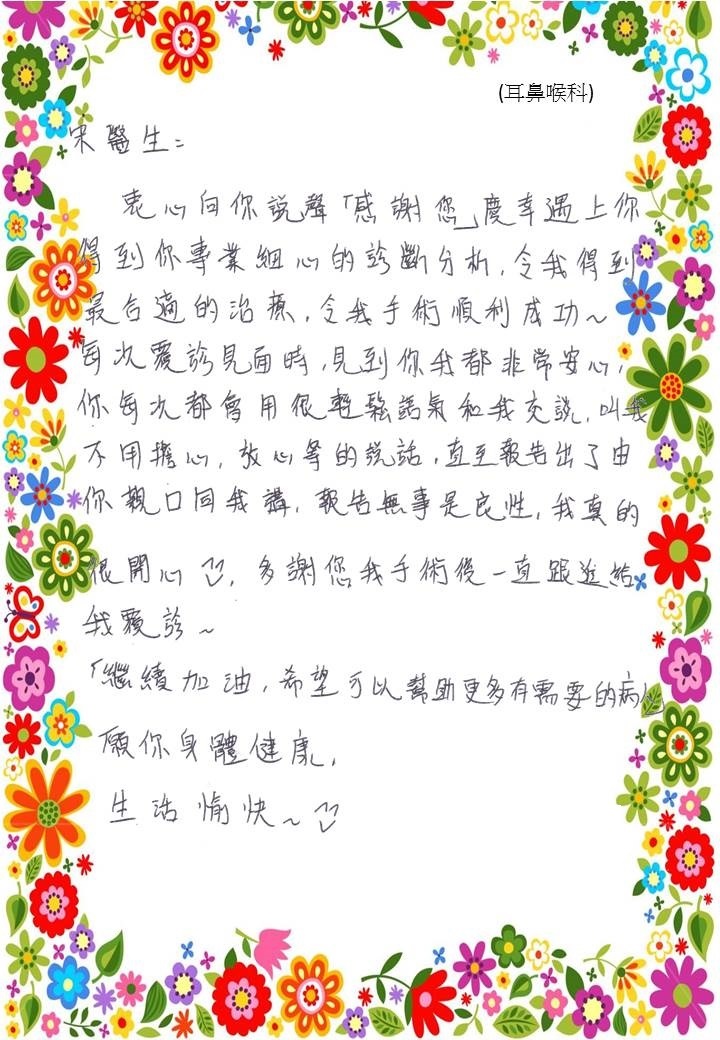 (耳鼻喉科)
宋醫生:
衷心向你説聲「感謝您」慶幸遇上你
得到你專業細心的診斷分析,令我得到
最合適的治療,令我手術順利成功~
每次覆診見面時,見到你我都非常安心,
你每次都會用很輕鬆語氣和我交談,叫我
不用擔心,放心等的説話,直至報告出了由
你親口同我講,報告無事是良性,我真的
很開心,多謝您我手術後一直跟進給
我覆診~
「繼續加油,希望可以幫助更多有需要的病
願你身體健康,
生活愉快~